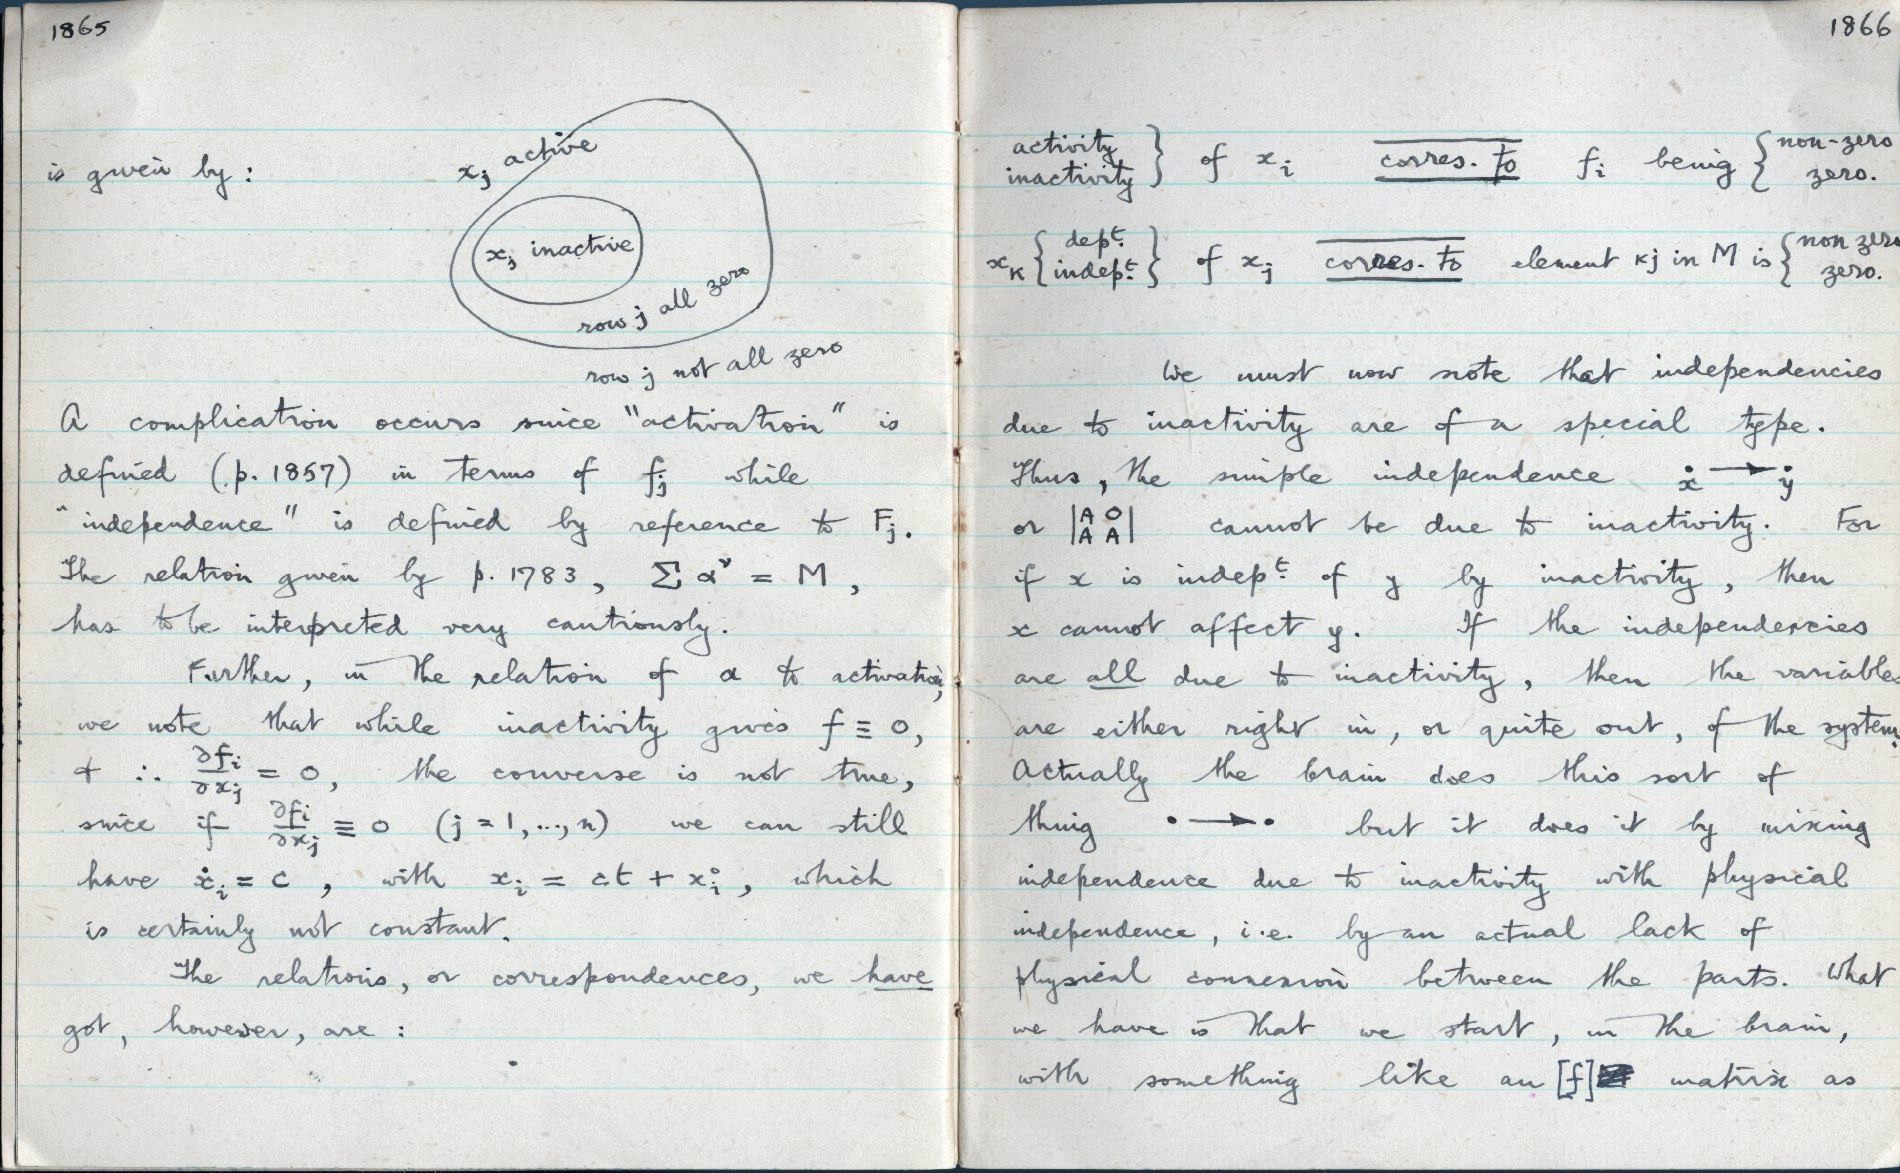 1865
is given by:
xj active
xj inactive
row j all zero
row j not all zero
A complication occurs since "activation" is
defined (p. 1857) in terms of fj while
"independence" is defined by reference to Fj.
The relation given by p. 1783, Σ αᵛ = M,
has to be interpreted very cautiously.
Further, in the relation of α to activation,
we note that while inactivity gives f ≡ 0,
+ ∴ ∂fi/∂xj = 0, the converse is not true,
since if ∂fi/∂xj ≡ 0 (j = 1, ..., n) we can still
have ẋi = c, with xi = ct + xi°, which
is certainly not constant.
The relations, or correspondences, we have
got, however, are:
1866
activity
inactivity } of xi corres. to fi being { non-zero
zero.
xK { dept.
indept. } of xj corres. to element Kj in M is { non zero
zero.
We must now note that independencies
due to inactivity are of a special type.
Thus, the simple independence ẋ → ẏ
or |A O
A A| cannot be due to inactivity. For
if x is indept. of y by inactivity, then
x cannot affect y. If the independencies
are all due to inactivity, then the variables
are either right in, or quite out, of the system.
Actually the brain does this sort of
thing • → • but it does it by mixing
independence due to inactivity with physical
independence, i.e. by an actual lack of
physical connexion between the parts. What
we have is that we start, in the brain,
with something like an [f] matrix as